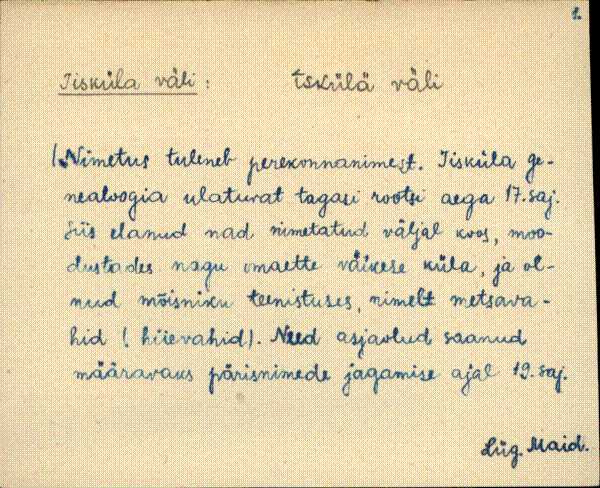 1.
Iisküla väli : īskülä väli
1. Nimetus tuleneb perekonnanimest. Iisküla ge-
nealoogia ulatuvat tagasi rootsi aega 17. saj.
Siis elanud nad nimetatud väljal koos, moo-
dustades nagu omaette väikese küla, ja ol-
nud mõisniku teenistuses, nimelt metsava-
hid (hiievahid). Need asjaolud saanud
määravaks pärisnimede jagamise ajal 19. saj.
Lüg. Maid.